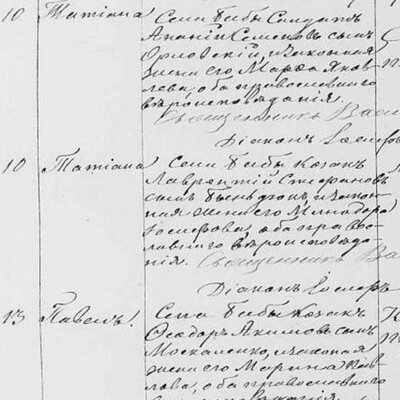 10 Татіана Села Бабы Солдатъ
Ананій Семеновъ сынъ
Орловскій, и законная
жена его Марѳа Яков-
лева, оба православнаго
вѣроисповѣданія.
Священникъ
Діаконъ
10 Татіана Села Бабы Козакъ
Лаврентій Стефановъ
сынъ и закон-
ная жена его Минодора
Іосифова, оба право-
славнаго вѣроисповѣда-
нія. Священникъ
Діаконъ
13 Павелъ. Села Бабы Козакъ
Ѳеодоръ Акимовъ сынъ
Москаленко, и законная
жена его Марина Пав-
лова, оба православнаго